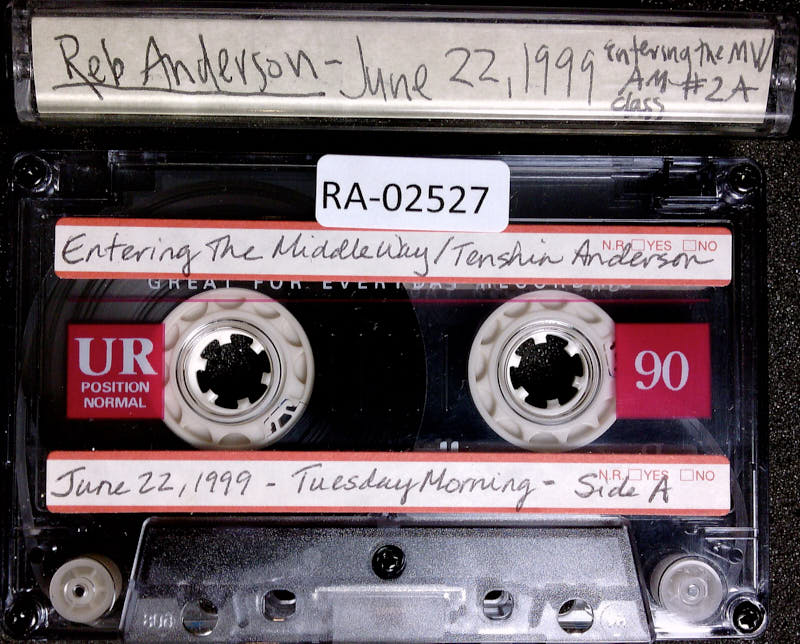 Reb Anderson - June 22, 1999
Entering the MW/
AM #2A
class
RA-02527
N.R. □YES □NO
Entering The Middle Way/Tenshin Anderson
GREAT FOR EVERYDAY RECORDING
UR
POSITION
NORMAL
90
N.R. □YES □NO
June 22, 1999 - Tuesday Morning - Side A